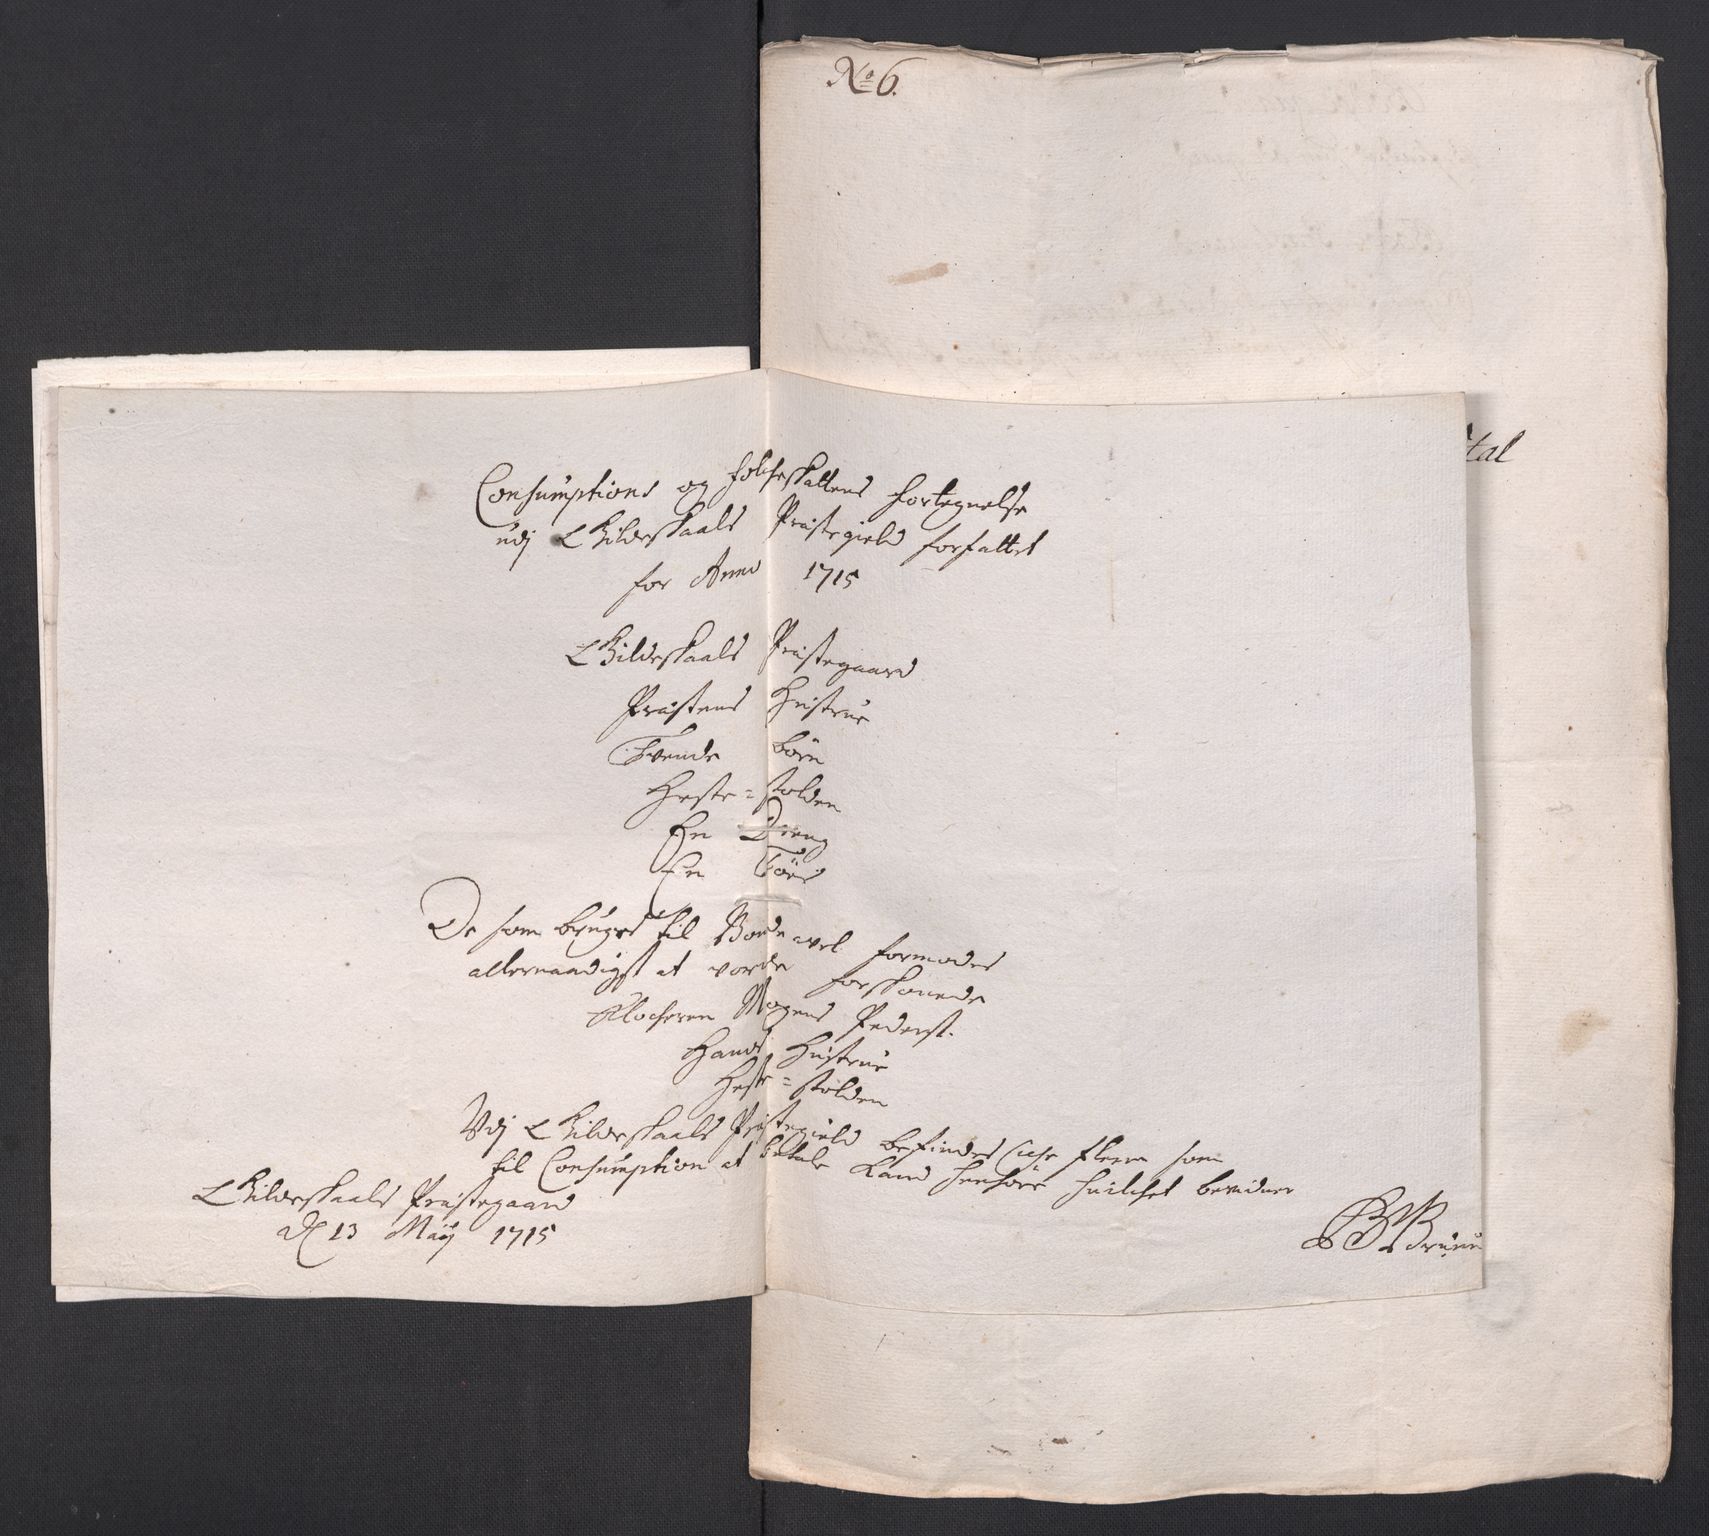 No 6.
tal
Consumptions og folcheskattens fortegnelse
udj Gildeskaals Præstegield forfattet
for Anno 1715
Gildeskaals Præstegaard
Præstens Hustrue
Tvende børn
Heste=stolden
En Dreng
En Tøes
De som bruges til Bonde avel formodes
allernaadigst at vorde forskonede
Klocheren Mogens Pederst.
Hands Hustrue
Heste=stolden
Udj Gildeskaals Præstegield befindes iche fleere som
til Consumption at betale kand henhøre huilchet bevidner
Gildeskaals Præstegaard
d 13 Maij 1715
Bruun